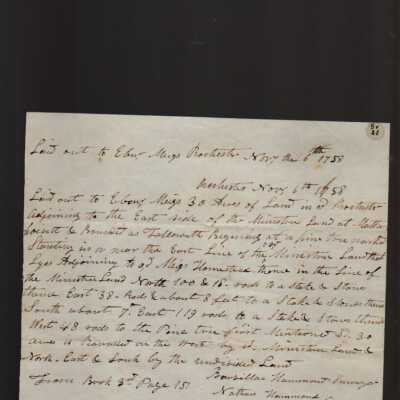 Laid out to Ebnr Meigs Rochester Novr the 6th 1758
Rochester Novr 6th 1758
Laid out to Ebenr Meigs 30 Acres of Land in sd Rochester
Adjoining to the East side of the Ministree Land at Matta
& Bounded as Followeth Begining at a pine tree marked
Standing in or near the East Line of the Ministree Land that
Lyes Adjoining to sd Meigs Homestead thence in the Line of
the Ministree Land North 100 & 15 rods to a stake & Stones
thence East 38 Rods & about 8 feet to a Stake & Stones thence
South about 7° East 119 rods to a Stake & Stones thence
West 48 rods to the Pine tree first Mentioned Sd 30
acres is Bounded on the West by sd Ministree Land &
North East & South by the undivided Land
Barzillai Hammond Survayr
From Book 3rd Page 151
Nathan Hammond